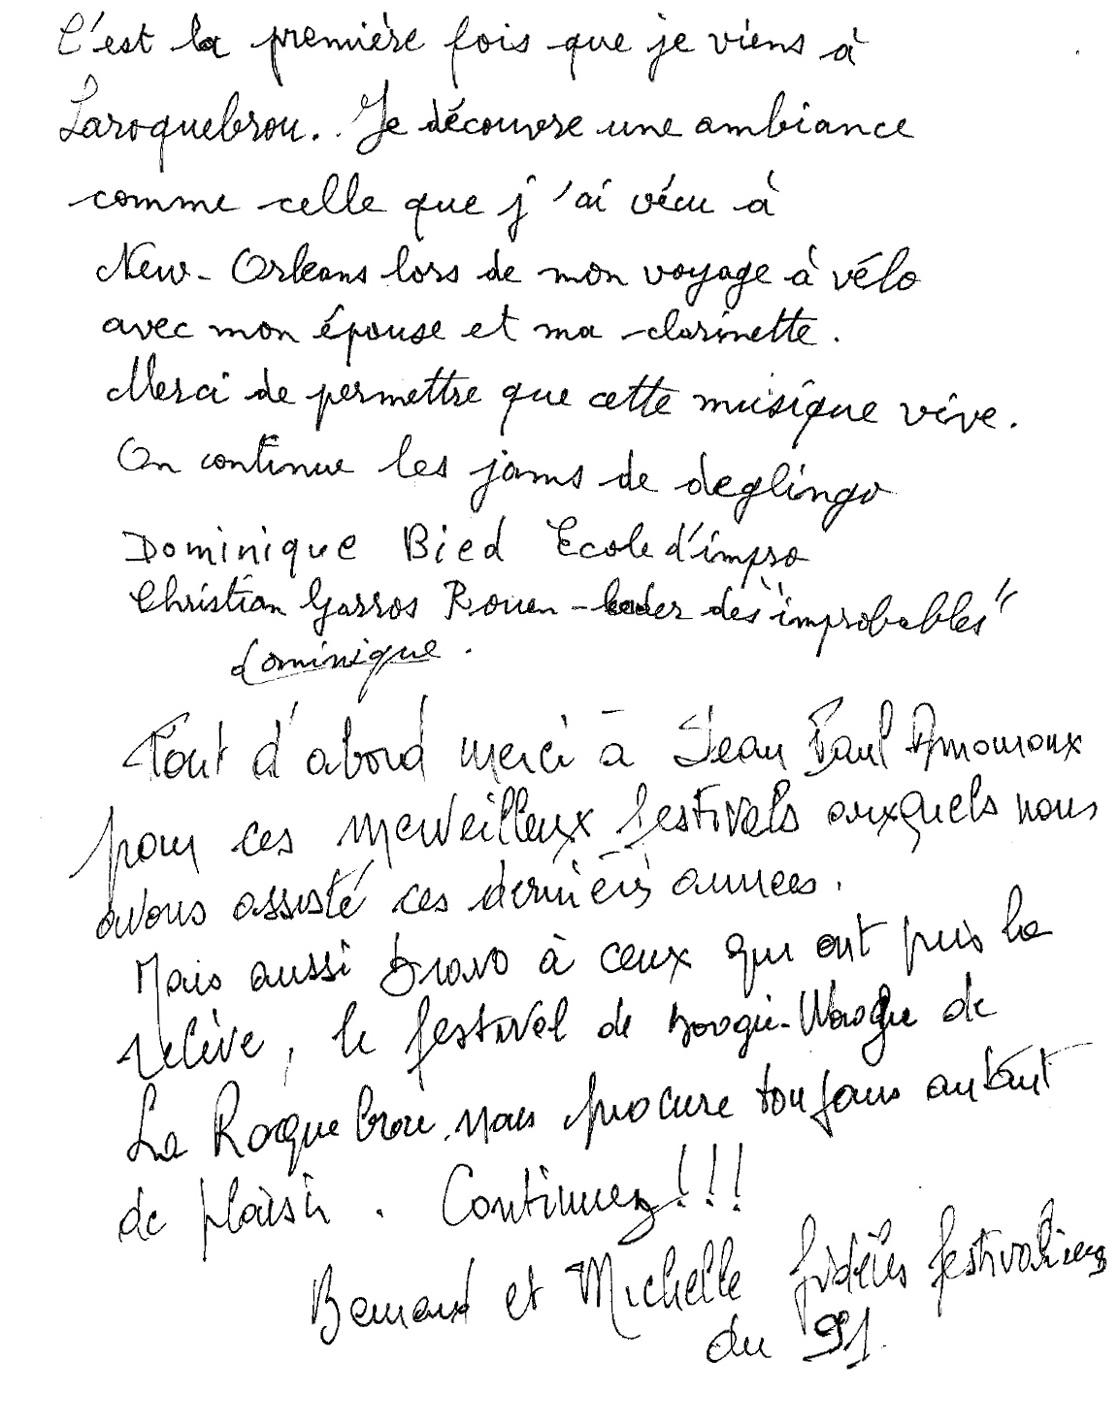 C'est la première fois que je viens à
Laroquebrou. Je découvre une ambiance
comme celle que j'ai vécu à
New-Orleans lors de mon voyage à vélo
avec mon épouse et ma clarinette.
Merci de permettre que cette musique vive.
On continue les jams de deglingo
Dominique Bied Ecole d'impro
Christian Garros Rouen - leader des "improbables"
dominique.
Tout d'abord merci à Jean Paul Amouroux
pour ces merveilleux festivals auxquels nous
avons assisté ces dernières années.
Mais aussi bravo à ceux qui ont pris la
relève, le festival de Boogie-Woogie de
La Roquebrou nous procure toujours autant
de plaisir. Continuez!!!
Bernard et Michelle fidèles festivaliers
du 91.